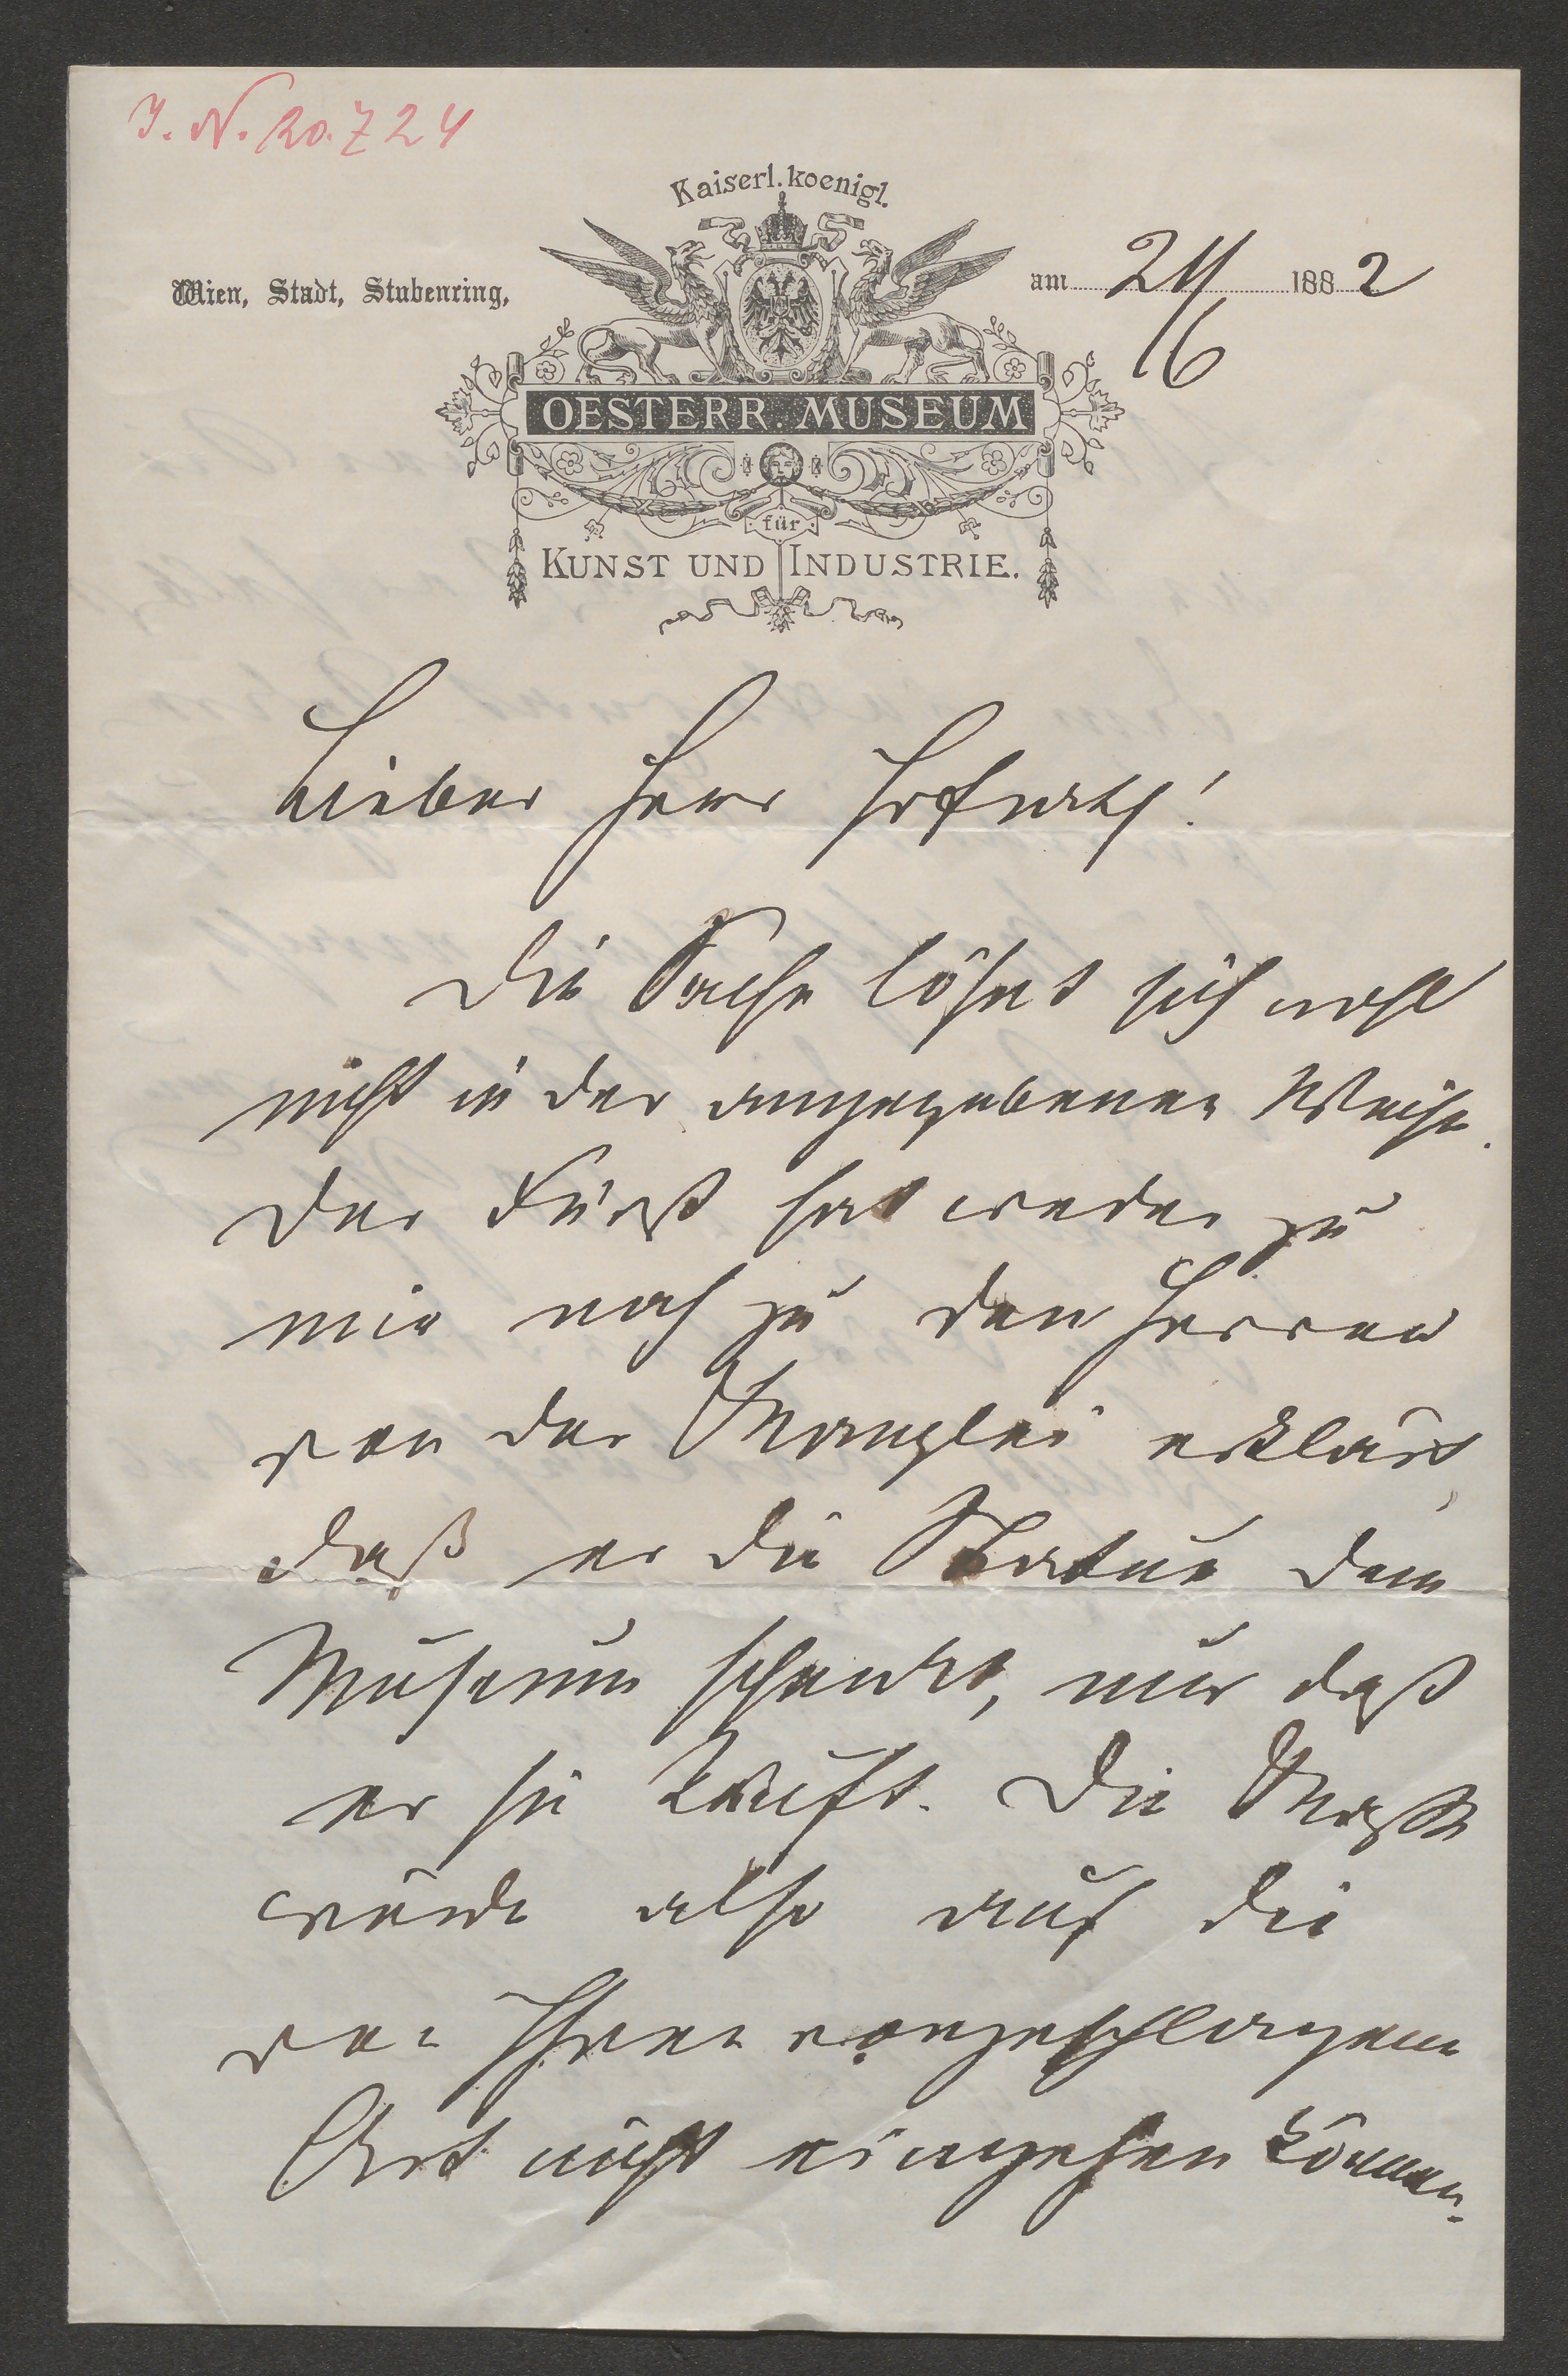 J. N. 20.724
Kaiserl. koenigl.
Wien, Stadt, Stubenring,
am 24/6 1882
OESTERR. MUSEUM
für
KUNST UND INDUSTRIE.
Lieber Herr Hofrath!
Die Sache löset sich wohl
nicht in der angegebenen Weise.
Der Fürst hat weder zu
mir noch zu den Herren
von der Kanzlei erklärt,
daß er die Statue dem
Museum schenkt, nur daß
er sie kauft. Die
würde also auf die
von Ihnen vorgeschlagene
Art nicht eingehen können.